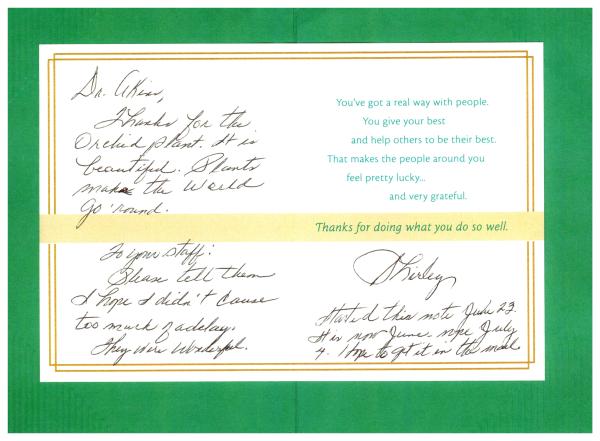 Dr. Akin,
Thanks for the
Orchid plant. It is
beautiful. Plants
make the World
go 'round.
To your staff:
Please tell them
I hope I didn't cause
too much of a delay.
They were wonderful.
You've got a real way with people.
You give your best
and help others to be their best.
That makes the people around you
feel pretty lucky...
and very grateful.
Thanks for doing what you do so well.
Shirley
Started this note June 23.
It is now June, nope July
4. I hope to get it in the mail.